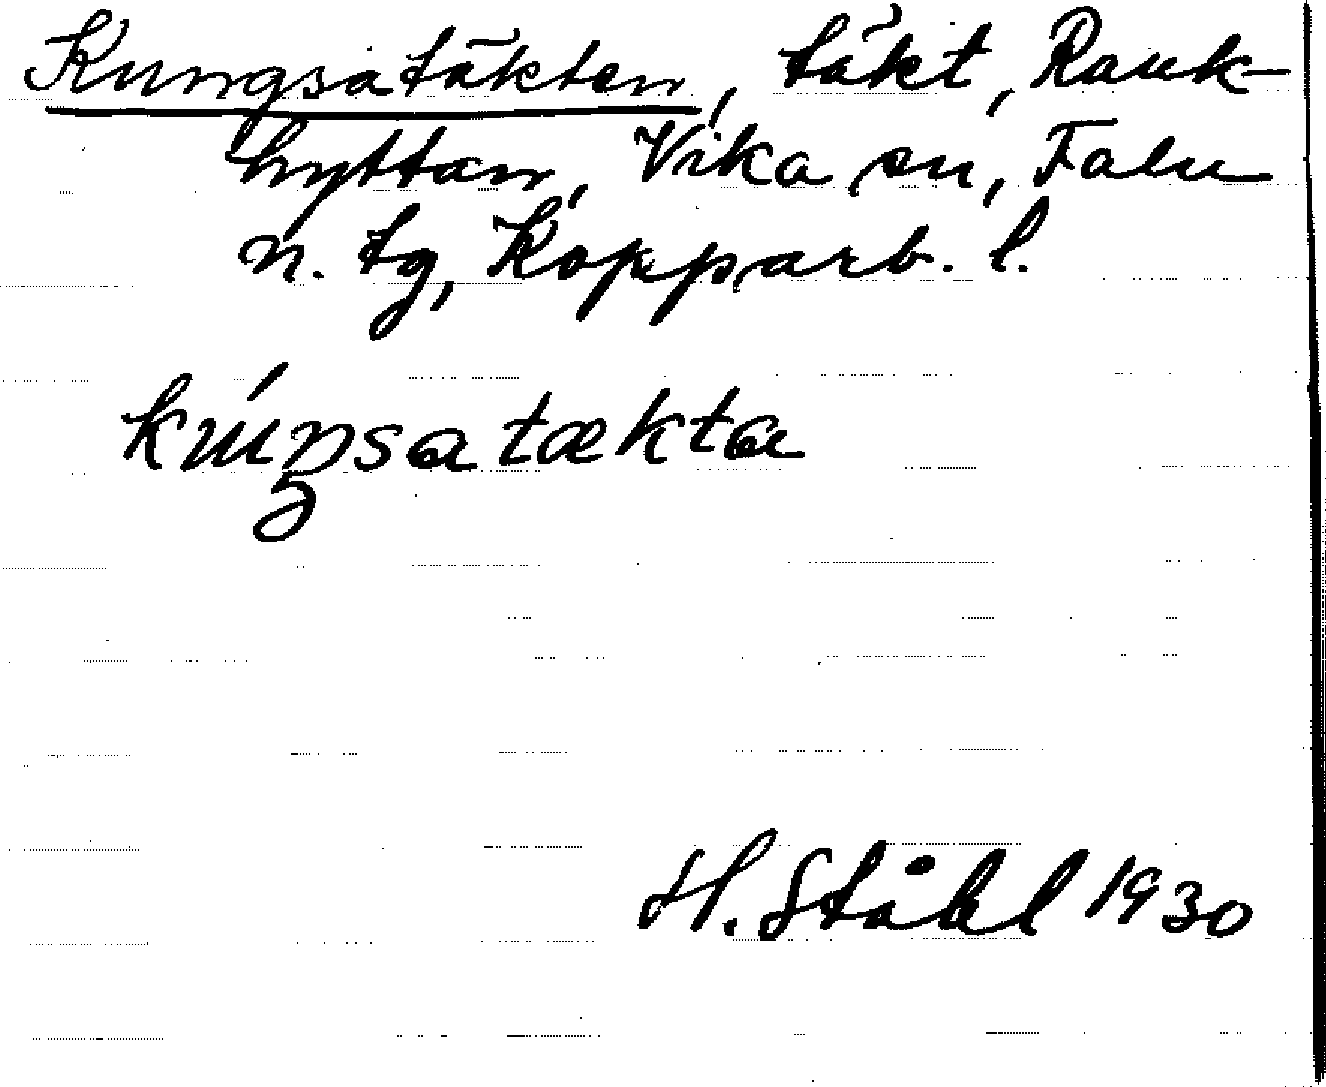 Kungsatäkten, täkt, Rank-
hyttan, Vika sn, Falu
n. tg, Kopparb. l.
kúŋsatækta
H. Ståhl 1930